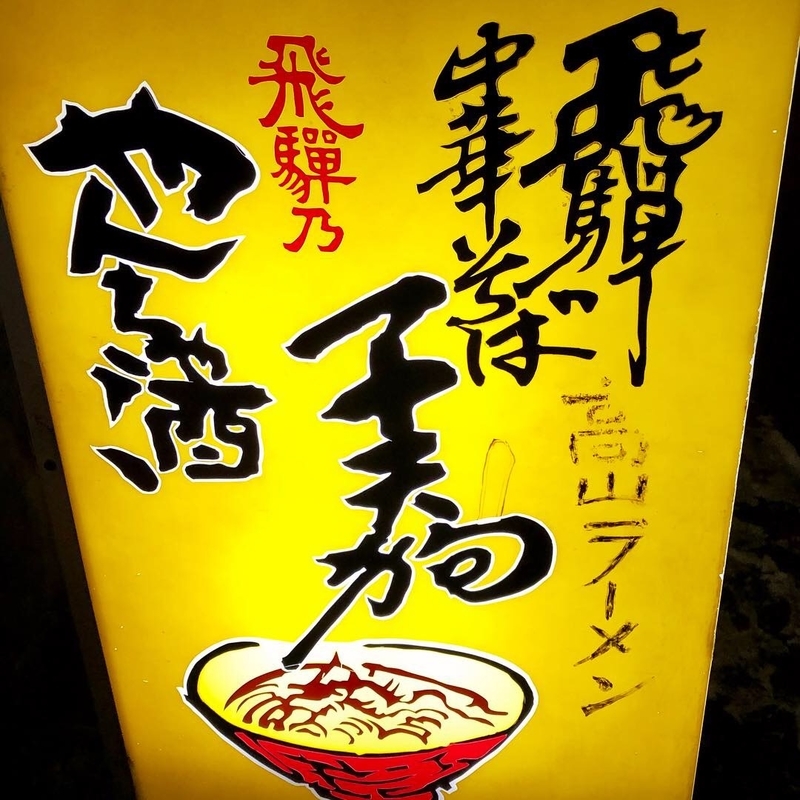 飛騨
中華そば
高山ラーメン
飛驒乃
やんちゃ酒